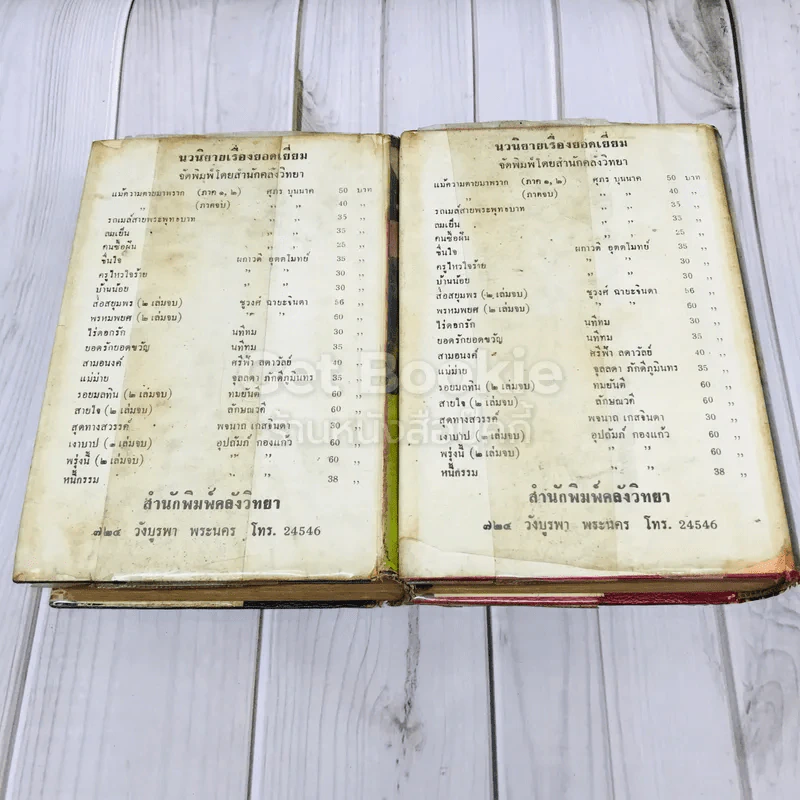 นวนิยายเรื่องยอดเยี่ยม
จัดพิมพ์โดยสำนักคลังวิทยา
แม้ความตายมาพราก (ภาค ๑, ๒) ศุภร บุนนาค 50 บาท
,, (ภาคจบ) ,, ,, 40 ,,
รถเมล์สายพระพุทธบาท ,, ,, 35 ,,
ลมเย็น ,, ,, 35 ,,
คนซื้อฝัน ,, ,, 25 ,,
ชื่นใจ ผกาวดี อุตตโมทย์ 35 ,,
ครูไหวใจร้าย ,, ,, 30 ,,
บ้านน้อย ,, ,, 30 ,,
ส่อสยุมพร (๒ เล่มจบ) ชูวงศ์ ฉายะจินดา 56 ,,
พรหมพยศ (๒ เล่มจบ) ,, ,, 60 ,,
ไร่ดอกรัก นทีทม 30 ,,
ยอดรักยอดขวัญ นทีทม 35 ,,
สามอนงค์ ศรีฟ้า ลดาวัลย์ 40 ,,
แม่ม่าย จุลลดา ภักดีภูมินทร 35 ,,
รอยมลทิน (๒ เล่มจบ) ทมยันตี 60 ,,
สายใจ (๒ เล่มจบ) ลักษณวดี 60 ,,
สุดทางสวรรค์ พจนาถ เกสจินดา 30 ,,
เงาบาป (๒ เล่มจบ) อุปถัมภ์ กองแก้ว 60 ,,
พรุ่งนี้ (๒ เล่มจบ) ,, ,, 60 ,,
หนี้กรรม ,, ,, 38 ,,
สำนักพิมพ์คลังวิทยา
๗๒๔ วังบูรพา พระนคร โทร. 24546
นวนิยายเรื่องยอดเยี่ยม
จัดพิมพ์โดยสำนักคลังวิทยา
แม้ความตายมาพราก (ภาค ๑, ๒) ศุภร บุนนาค 50 บาท
,, (ภาคจบ) ,, ,, 40 ,,
รถเมล์สายพระพุทธบาท ,, ,, 35 ,,
ลมเย็น ,, ,, 35 ,,
คนซื้อฝัน ,, ,, 25 ,,
ชื่นใจ ผกาวดี อุตตโมทย์ 35 ,,
ครูไหวใจร้าย ,, ,, 30 ,,
บ้านน้อย ,, ,, 30 ,,
ส่อสยุมพร (๒ เล่มจบ) ชูวงศ์ ฉายะจินดา 56 ,,
พรหมพยศ (๒ เล่มจบ) ,, ,, 60 ,,
ไร่ดอกรัก นทีทม 30 ,,
ยอดรักยอดขวัญ นทีทม 35 ,,
สามอนงค์ ศรีฟ้า ลดาวัลย์ 40 ,,
แม่ม่าย จุลลดา ภักดีภูมินทร 35 ,,
รอยมลทิน (๒ เล่มจบ) ทมยันตี 60 ,,
สายใจ (๒ เล่มจบ) ลักษณวดี 60 ,,
สุดทางสวรรค์ พจนาถ เกสจินดา 30 ,,
เงาบาป (๒ เล่มจบ) อุปถัมภ์ กองแก้ว 60 ,,
พรุ่งนี้ (๒ เล่มจบ) ,, ,, 60 ,,
หนี้กรรม ,, ,, 38 ,,
สำนักพิมพ์คลังวิทยา
๗๒๔ วังบูรพา พระนคร โทร. 24546
Det Bookie